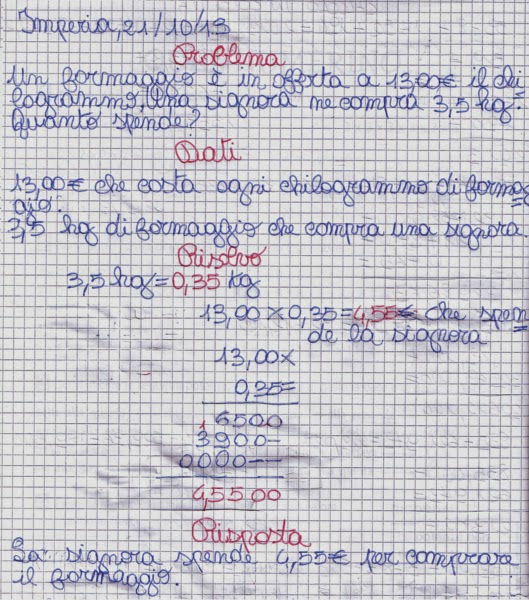 Imperia, 21/10/13
Problema
Un formaggio è in offerta a 13,00€ il chi=
logrammo. Una signora ne compra 3,5 hg.
Quanto spende?
Dati
13,00€ che costa ogni chilogrammo di formag=
gio.
3,5 hg di formaggio che compra una signora.
Risolvo
3,5 hg=0,35 kg
13,00×0,35=4,55€ che spen=
de la signora
13,00×
0,35=
6500
3900-
0000--
4,5500
Risposta
La signora spende 4,55€ per comprare
il formaggio.